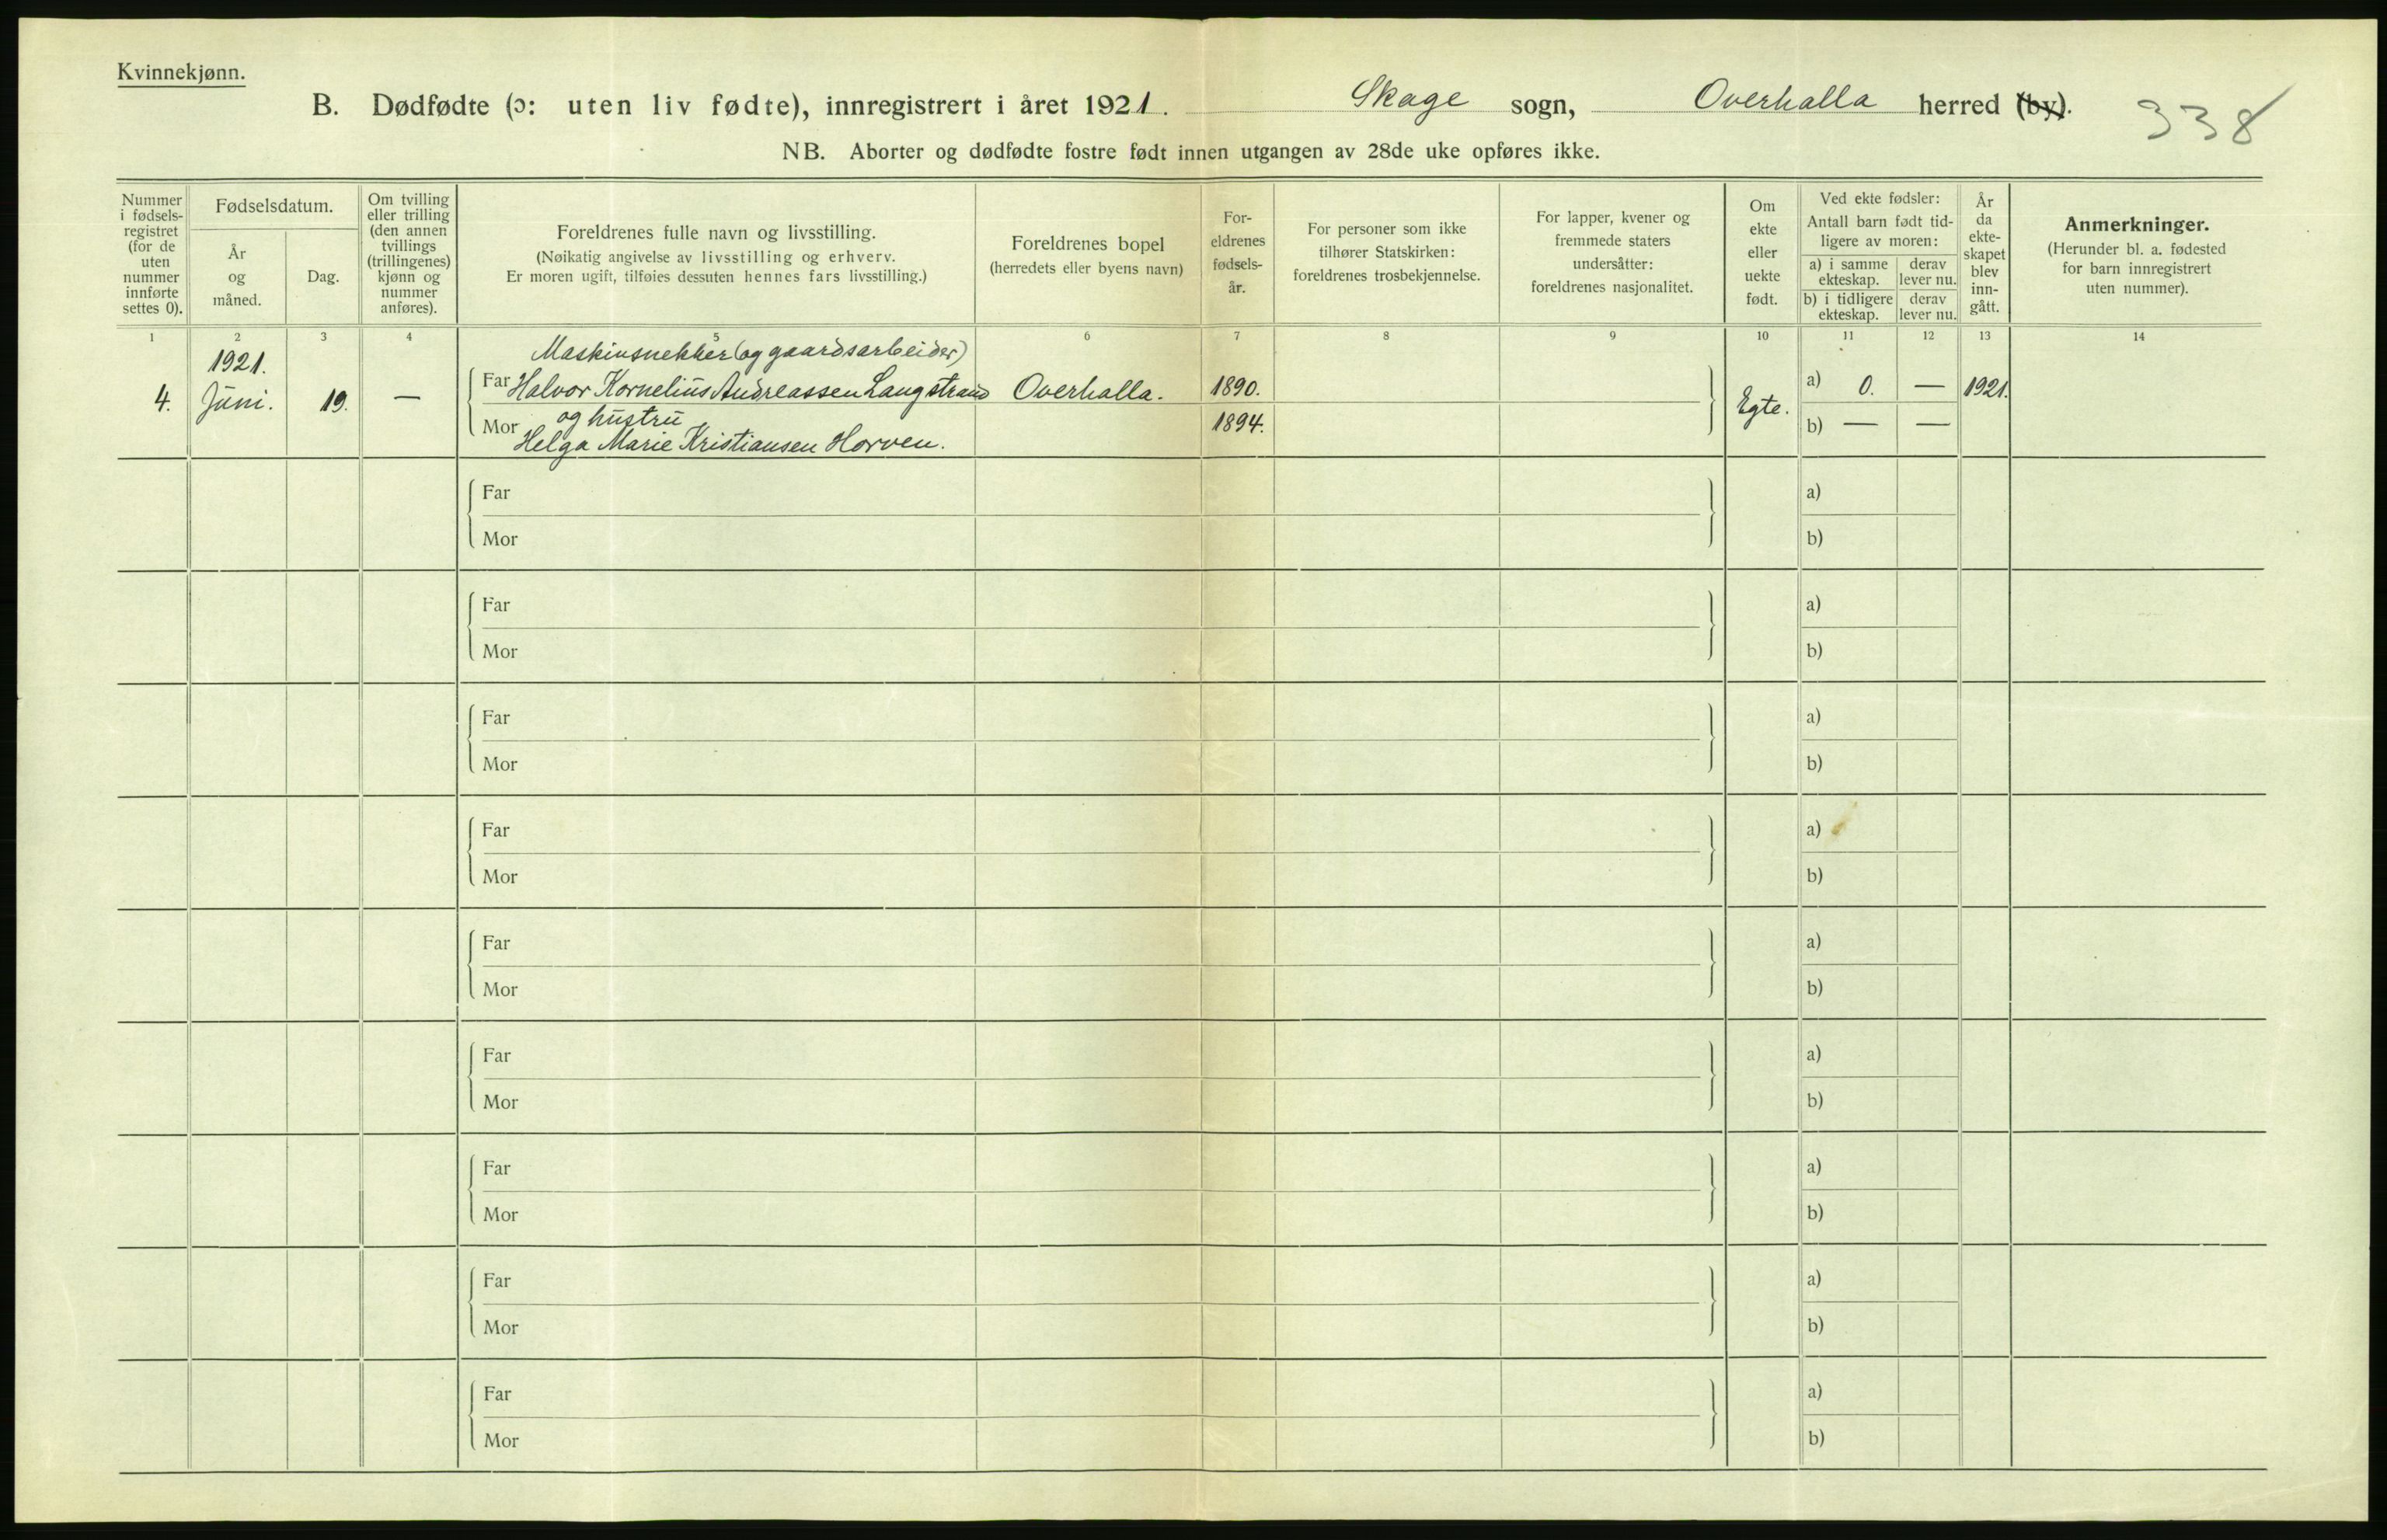 Kvinnekjønn.
B. Dødfødte (ɔ: uten liv fødte), innregistrert i året 1921. Skage sogn, Overhalla herred (by).
338
NB. Aborter og dødfødte fostre født innen utgangen av 28de uke opføres ikke.
Nummer
i fødsels-
registret
(for de
uten
nummer
innførte
settes 0).
Fødselsdatum.
År
og
måned.
Dag.
Om tvilling
eller trilling
(den annen
tvillings
(trillingenes)
kjønn og
nummer
anføres).
Foreldrenes fulle navn og livsstilling.
(Nøikatig angivelse av livsstilling og erhverv.
Er moren ugift, tilføies dessuten hennes fars livsstilling.)
Foreldrenes bopel
(herredets eller byens navn)
For-
eldrenes
fødsels-
år.
For personer som ikke
tilhører Statskirken:
foreldrenes trosbekjennelse.
For lapper, kvener og
fremmede staters
undersåtter:
foreldrenes nasjonalitet.
Om
ekte
eller
uekte
født.
Ved ekte fødsler:
Antall barn født tid-
ligere av moren:
a) i samme
ekteskap.
derav
lever nu.
b) i tidligere
ekteskap.
derav
lever nu.
År
da
ekte-
skapet
blev
inn-
gått.
Anmerkninger.
(Herunder bl. a. fødested
for barn innregistrert
uten nummer).
1 2 3 4 5 6 7 8 9 10 11 12 13 14
Maskinsnekker (og gaardsarbeider)
1921.
4. Juni. 19. —
Far Halvor Kornelius Andreassen Langstrand Overhalla. 1890.
Egte. a) 0. — 1921.
og hustru
Mor Helga Marie Kristiansen Horven. 1894.
b) — —
Far a)
Mor b)
Far a)
Mor b)
Far a)
Mor b)
Far a)
Mor b)
Far a)
Mor b)
Far a)
Mor b)
Far a)
Mor b)
Far a)
Mor b)
Far a)
Mor b)